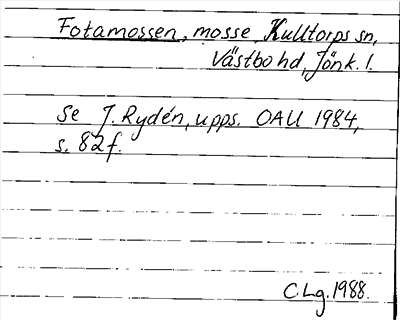 Fotamossen, mosse Kulltorps sn,
Västbo hd, Jönk. l.
Se J. Rydén, upps. OAU 1984,
s. 82f.
CLg. 1988.